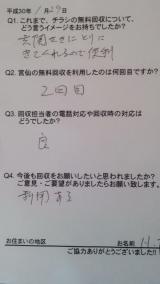 平成30年1月29日
Q1. これまで、チラシの無料回収について、
どう言うイメージをお持ちでしたか?
玄関さきにとりに
きてくれるので便利
Q2. 当社の無料回収を利用したのは何回目ですか?
2回目
Q3. 回収担当者の電話対応や回収時の対応は
どうでしたか?
良
Q4. 今後も回収をお願いしたいと思われましたか?
ご意見・ご要望がありましたらお願い致します。
利用する
お住まいの地区
お名前
ご協力ありがとうございました!!